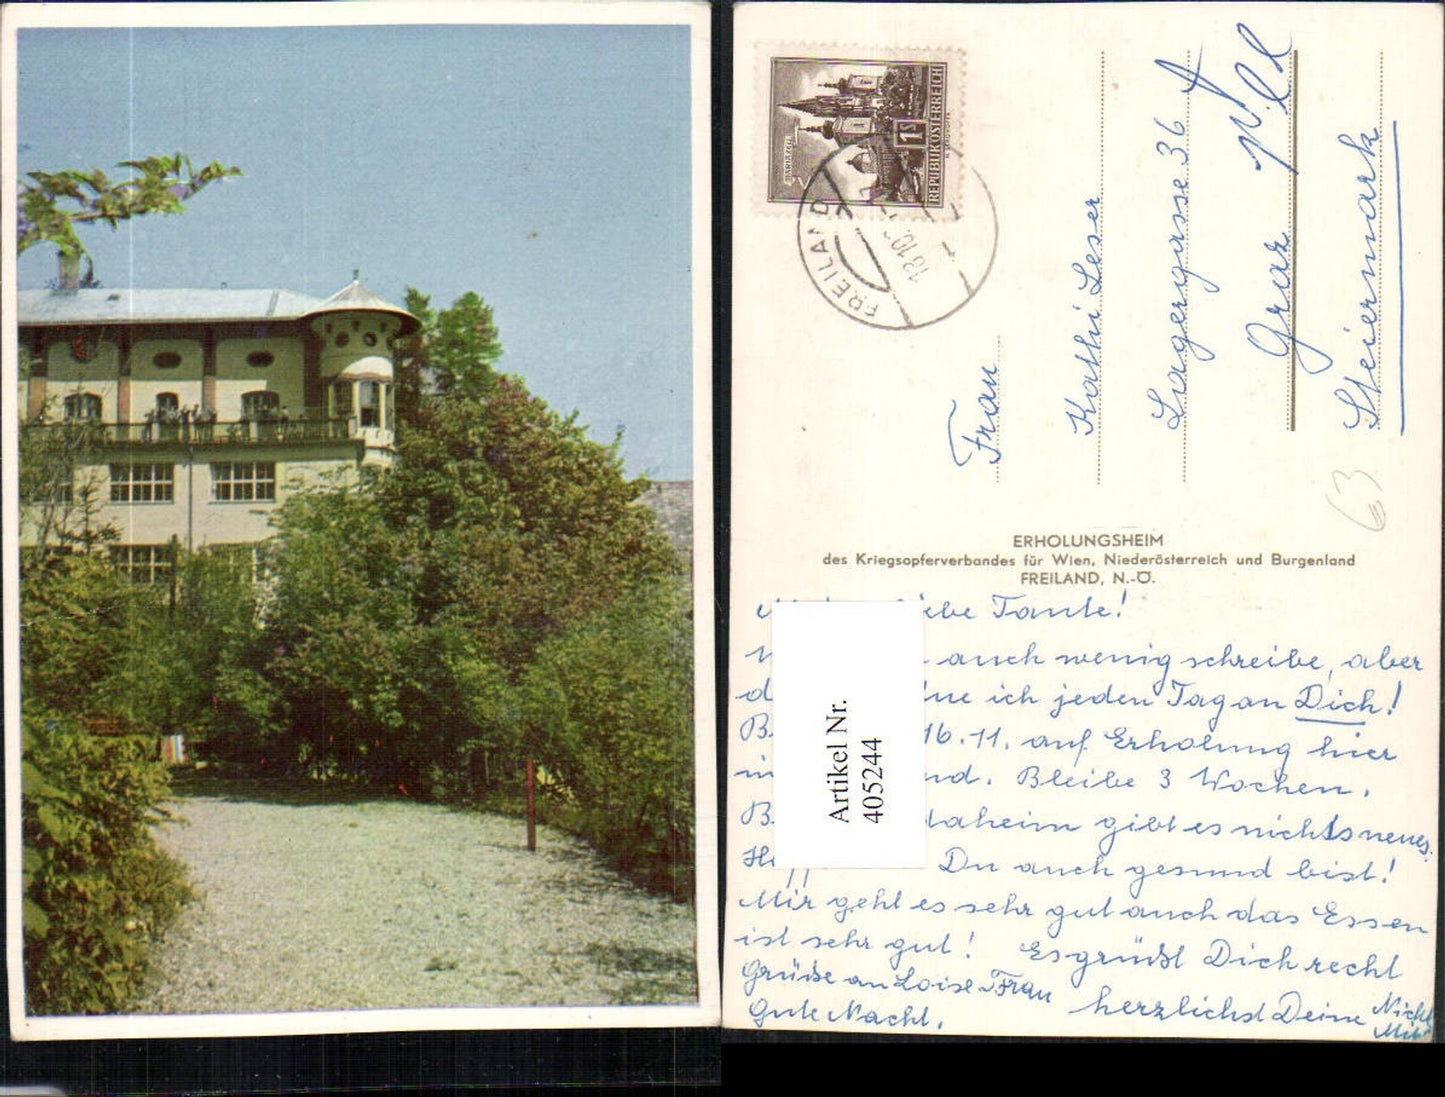 REPUBLIK ÖSTERREICH
1S
MARIAZELL
FREILAND
18.10.
Frau
Kathi Leser
Lagergasse 36
Graz
Steiermark
63
ERHOLUNGSHEIM
des Kriegsopferverbandes für Wien, Niederösterreich und Burgenland
FREILAND, N.-Ö.
Tante!
auch wenig schreibe, aber
ich jeden Tag an Dich!
16.11. auf Erholung hier
Bleibe 3 Wochen.
daheim gibt es nichts neues.
Du auch gesund bist!
Mir geht es sehr gut auch das Essen
ist sehr gut! Es grüßt Dich recht
herzlichst Deine
Grüße an Loise Frau
Gute Nacht.
Artikel Nr.
405244